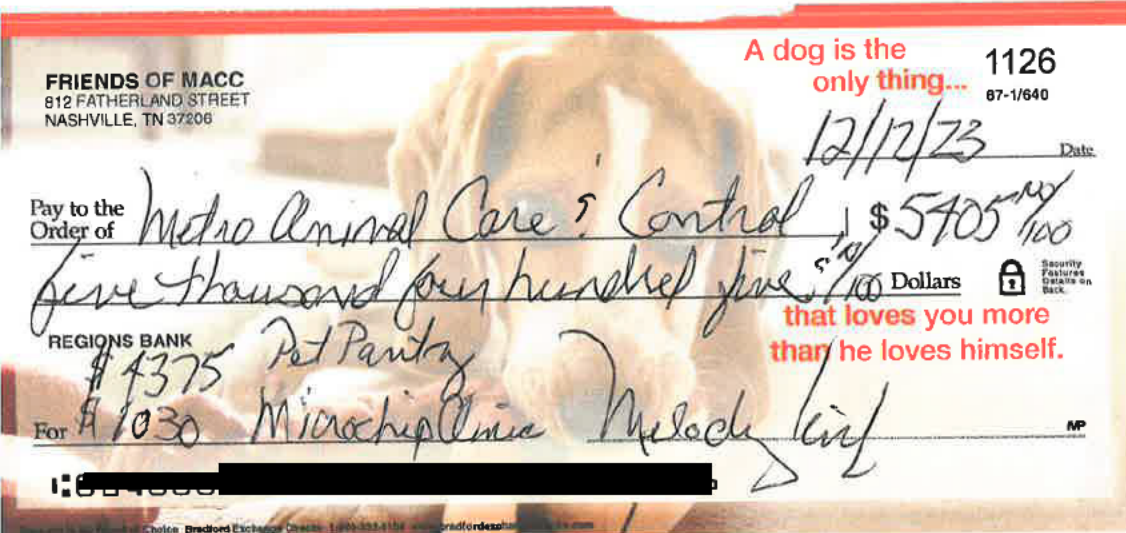 A dog is the
only thing...
1126
67-1/640
FRIENDS OF MACC
812 FATHERLAND STREET
NASHVILLE, TN 37206
12/12/23 Date
Pay to the
Order of Metro Animal Care & Control $ 5405 no/100
five thousand four hundred five & no/100 Dollars
Security
Features
Details on
Back.
that loves you more
than he loves himself.
REGIONS BANK
$4375 Pet Pantry
For $1030 Microchip Clinic Melody
MP
Choice Bradford Exchange Checks